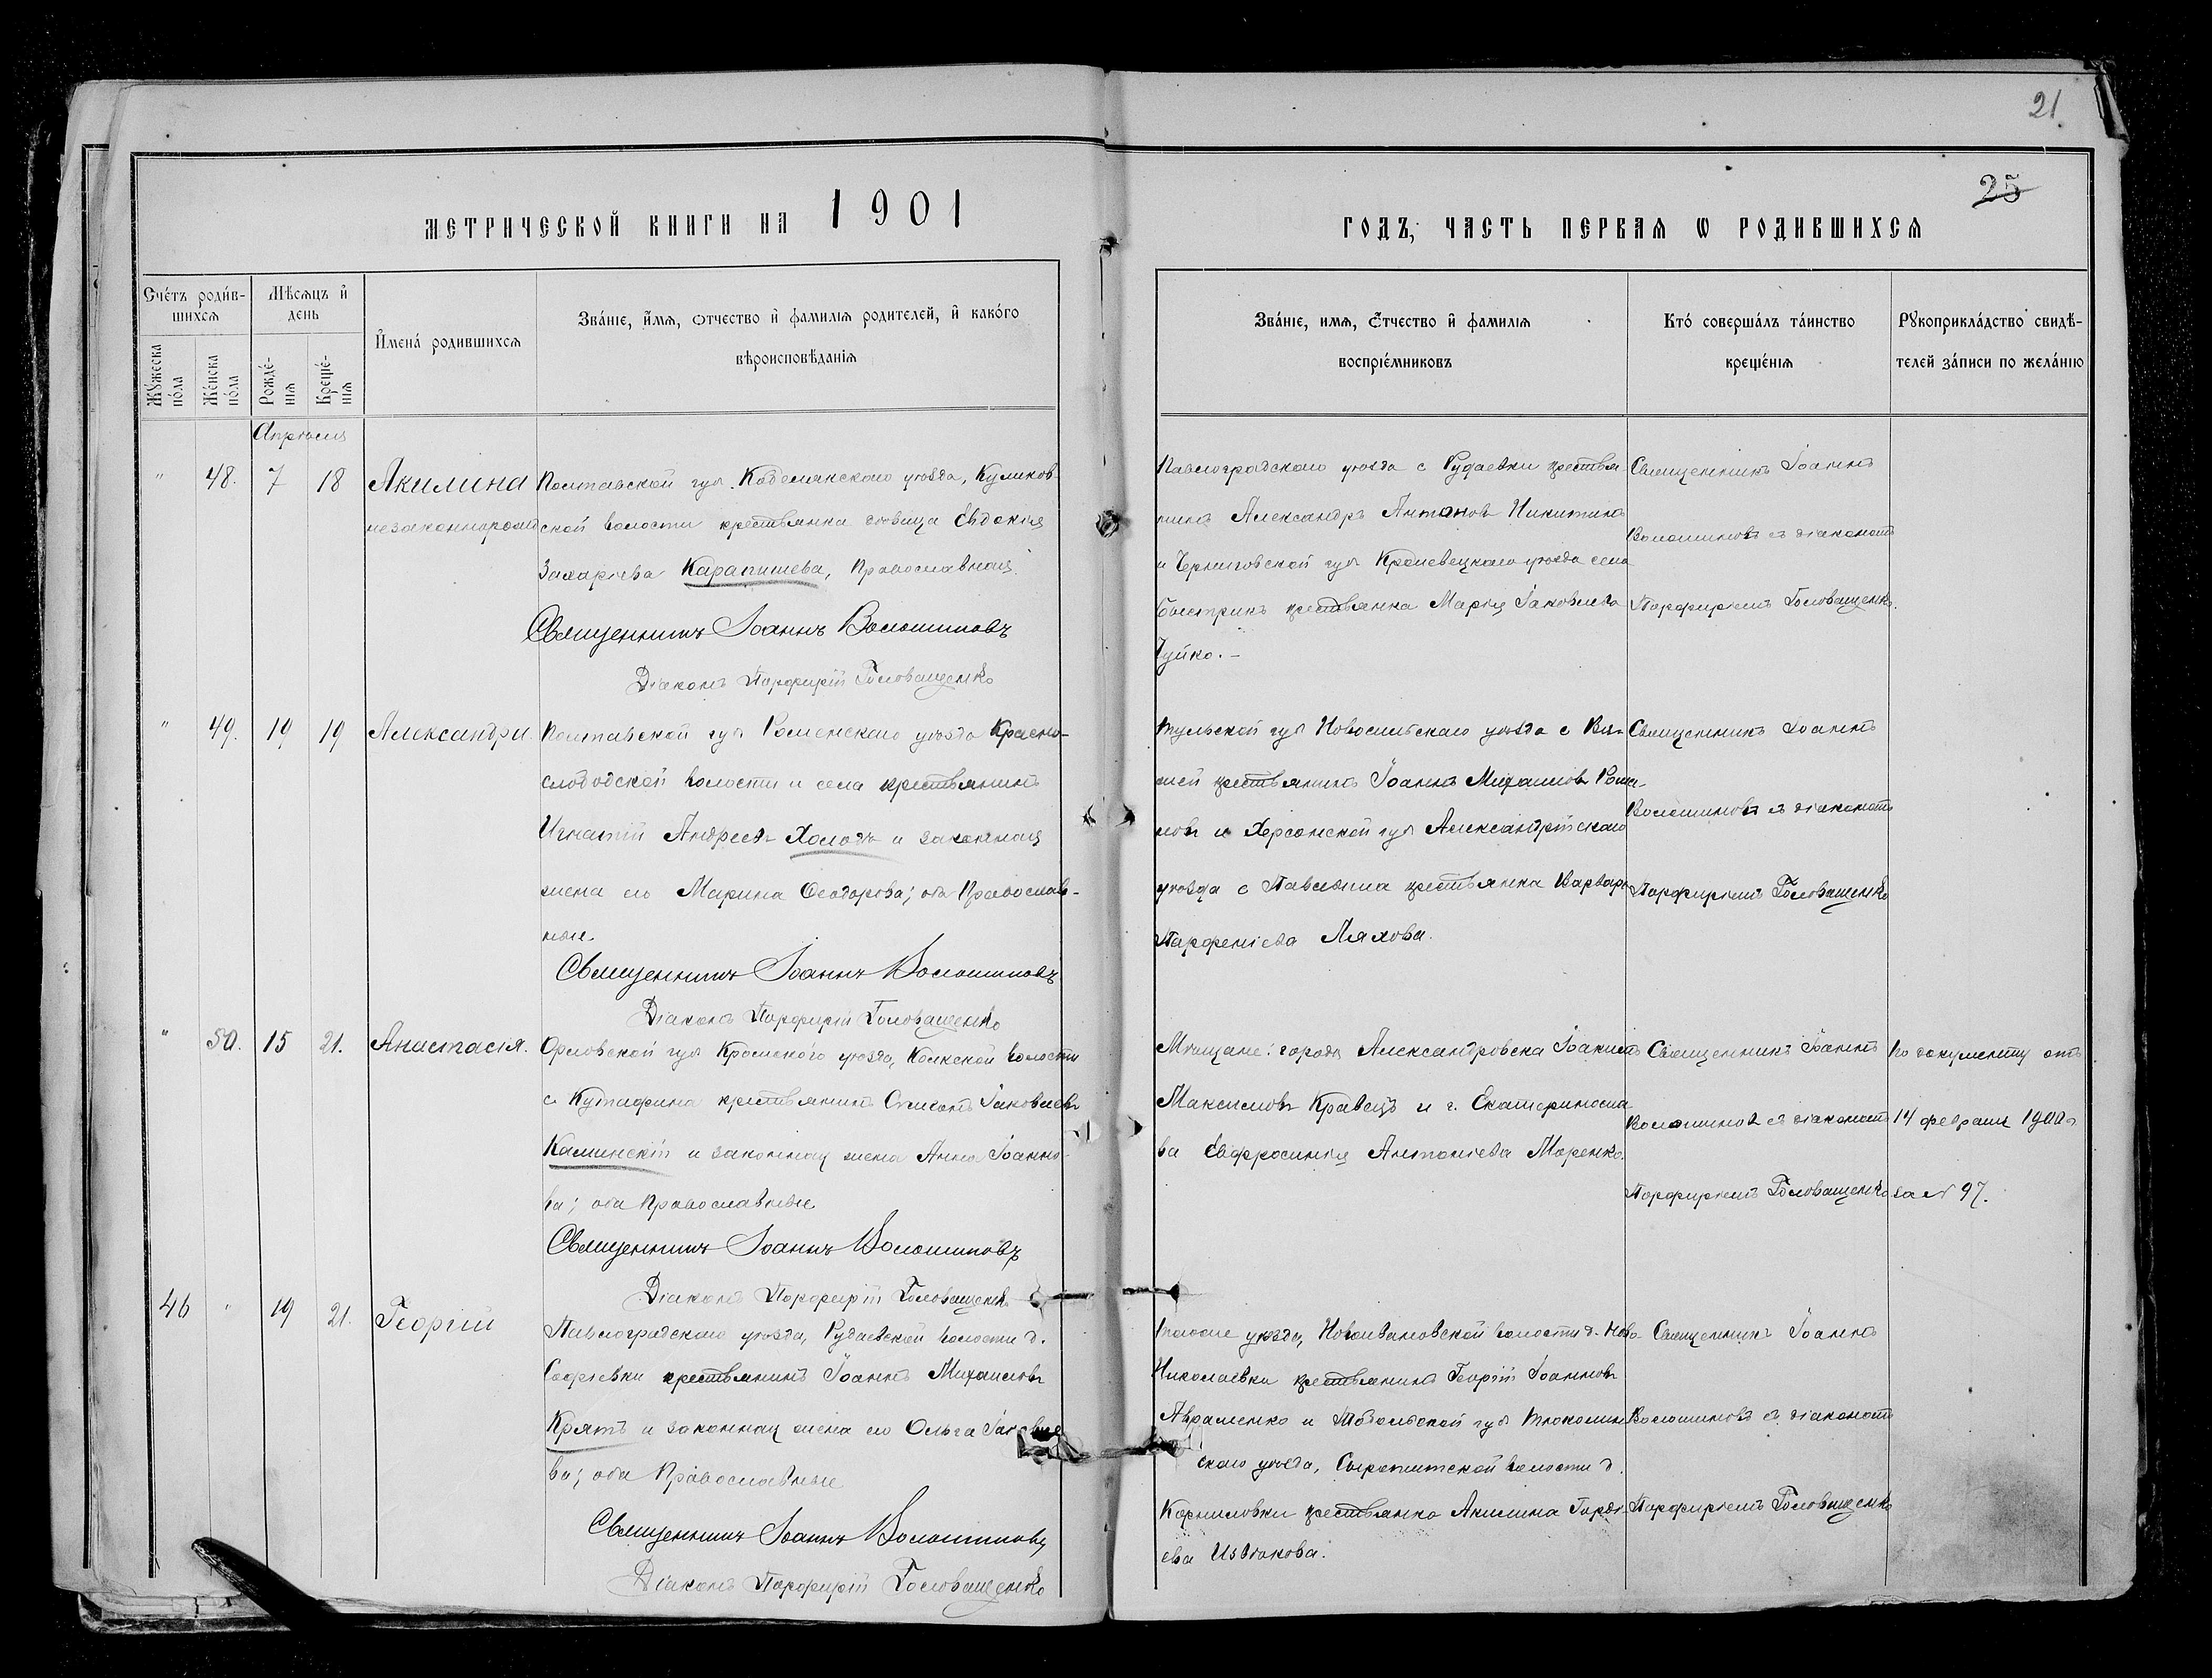 21
25
МЕТРИЧЕСКОЙ КНИГИ НА 1901
ГОДЪ, ЧАСТЬ ПЕРВАЯ Ѡ РОДИВШИХСЯ
Сче́тъ роди́в-
шихся
Мѣ́сяцъ и҆
день
Му́жеска
по́ла
Же́нска
по́ла
Рожде́-
нія
Креще́-
нія
И҆мена́ родившихся
Зва́ніе, и҆́мя, ѻтчество и҆ фамилія родителей, и҆ како́го
вѣроисповѣ́данія
Зва́ніе, имя, ѻ҆́тчество и҆ фамилія
воспріе́мниковъ
Кто́ соверша́лъ та́инство
креще́нія
Рꙋкоприкла́дство свидѣ́-
телей за́писи по жела́нію
Апрѣля
" 48. 7 18 Акилина
незаконнорожд
Полтавской губ. Кобелякского уѣзда, Куликов-
ской волости крестьянка дѣвица Евдокія
Захаріева Карапишева, Православная.
Священникъ Іоаннъ Волошиновъ
Діаконъ Порфирій Головащенко
Павлоградскаго уѣзда с Рудаевки крестья-
нинъ Александръ Антоновъ Никитинъ
и Черниговской губ Кролевецкаго уѣзда села
Быстрикъ крестьянка Марія Іаковлева
Чуйко. –
Священникъ Іоаннъ
Волошиновъ съ діакономъ
Порфиріемъ Головащенко.
" 49. 19 19 Александра.
Полтавской губ Роменскаго уѣзда Красно-
слободской волости и села крестьянинъ
Игнатій Андреевъ Холодъ и законная
жена его Марина Ѳеодорова; оба Православ-
ные.
Священникъ Іоаннъ Волошиновъ
Діаконъ Порфирій Головащенко
Тульской губ Новосильскаго уѣзда с
крестьянинъ Іоаннъ Михаиловъ Рома-
новъ и Херсонской губ Александрійскаго
уѣзда с крестьянка Варвара
Парфеніева Ляхова.
Священникъ Іоаннъ
Волошиновъ съ діакономъ
Порфиріемъ Головащенко
" 50. 15 21. Анастасія.
Орловской губ Кромского уѣзда, волости
с Кутафина крестьянинъ Іаковлевъ
Каминскій и законная жена Анна Іоанно-
ва; оба Православные
Священникъ Іоаннъ Волошиновъ
Діаконъ Порфирій Головащенко
Мѣщане: города Александровска Іоакимъ
Максимовъ Кравецъ и г. Екатериносла
ва Евфросинія Антоніева Маренко.
Священникъ Іоаннъ
Волошиновъ съ діакономъ
Порфиріемъ Головащенко
По документу отъ
14 февраля 1900 г
за № 97.
46 " 19 21. Георгій
Павлоградскаго уѣзда, Рудаевской волости д.
Софіевки крестьянинъ Іоаннъ Михаиловъ
Крятъ и законная жена его Ольга Іаковле
ва; оба Православные
Священникъ Іоаннъ Волошиновъ
Діаконъ Порфирій Головащенко
уѣзда, Новоивановской волости д. Ново-
Николаевки крестьянинъ Георгій Іоанновъ
Авраменко и Тобольской губ Тюкалин
скаго уѣзда, Сыропятской волости д.
Корниловки крестьянка Акилина Гордѣ-
ева Извѣкова.
Священникъ Іоаннъ
Волошиновъ съ діакономъ
Порфиріемъ Головащенко